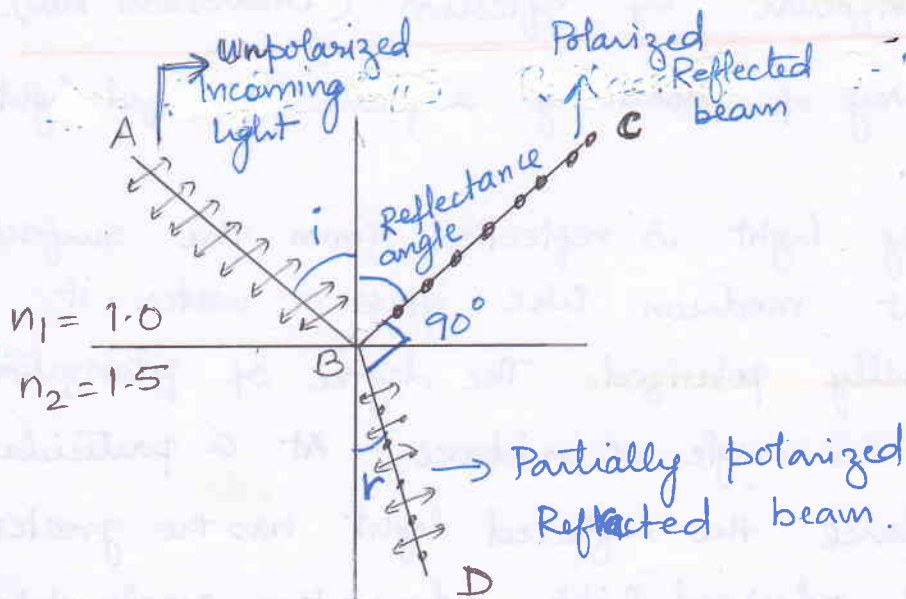 Unpolarized
Incoming
light
Polarized
Reflected
beam
A
C
i
Reflectance
angle
90°
n₁ = 1.0
n₂ = 1.5
B
r
Partially polarized
Refracted beam.
D